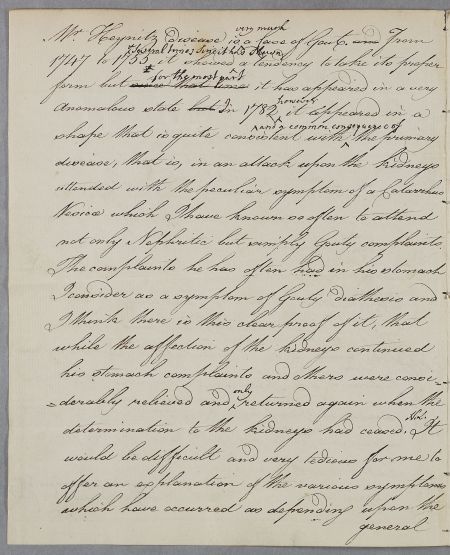 very much
Mr. Heynitz disease is a case of Gout, and From
& several times since it has shewn
1747 to 1755 it shewed a tendency to take its proper
for the most part
form but since that time it has appeared in a very
however
Anomalous state but In 1782 it appeared in a
and common consequence of
shape that is quite consistent with the primary
disease, that is, in an attack upon the kidneys
attended with the peculiar symptom of a Catarrhus
Vesicae which I have known so often to attend
not only Nephritic but simply Gouty complaints.
The complaints he has often had in his stomach
I consider as a symptom of Gouty diathesis and
I think there is this clear proof of it, that
while the affection of the kidneys continued
his stomach complaints and others were consi-
only
=derably relieved and returned again when the
determination to the kidneys had ceased. It
would be difficult and very tedious for me to
offer an explanation of the various symptoms
which have occurred as depending upon the
general